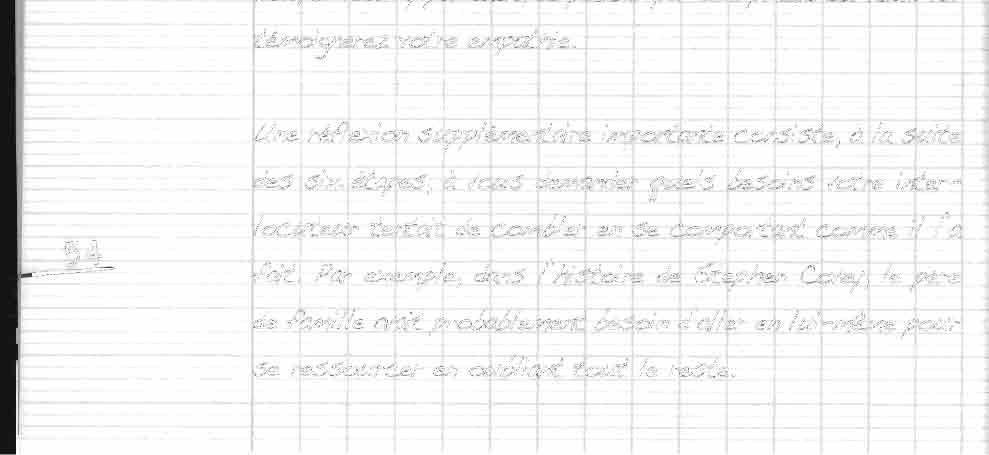 témoignerez votre empathie.
Une réflexion supplémentaire importante consiste, à la suite
des six étapes, à vous demander quels besoins votre inter-
locuteur tentait de combler en se comportant comme il l'a
fait. Par exemple, dans l'histoire de Stephen Covey, le père
de famille avait probablement besoin d'aller en lui-même pour
se ressourcer en oubliant tout le reste.
94